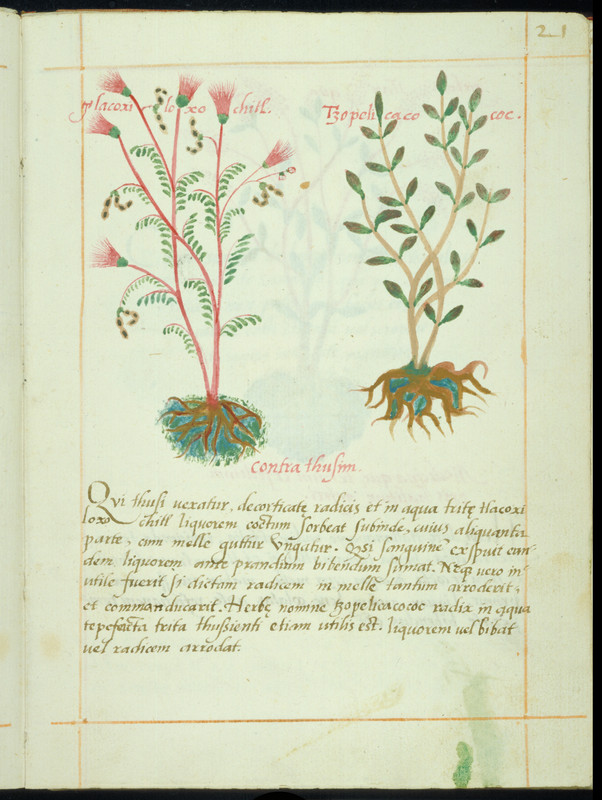 21
tlacoxi loxo chitl.
Tzopeli caco coc.
contra thusim.
Qui thusi uexatur, decorticatę radicis et in aqua tritę tlacoxi
loxo chitl liquorem coctum sorbeat subinde, cuius aliquanta
parte, cum melle guttur ungatur. Qsi sanguinē exspuit eun-
dem liquorem ante prandium bibendum sumat. Neq vero in
utile fuerit si dictam radicem in melle tantum arroderit,
et commanducarit. Herbę nomine tzopelicacococ radix in aqua
tepefacta trita thussienti etiam utilis est. liquorem vel bibat
uel radicem arrodat.